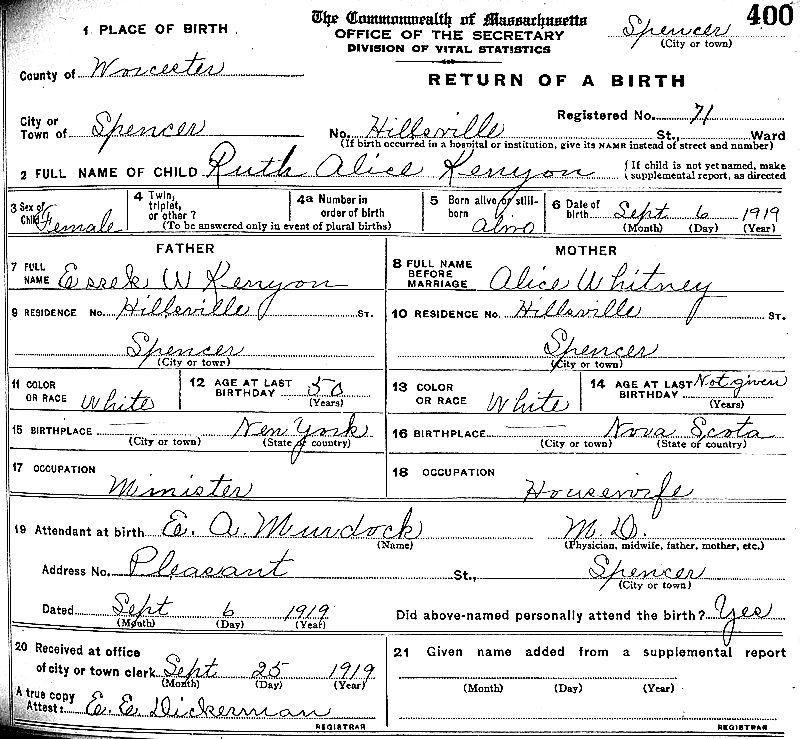 400
The Commonwealth of Massachusetts
OFFICE OF THE SECRETARY
DIVISION OF VITAL STATISTICS
Spencer
(City or town)
1 PLACE OF BIRTH
County of Worcester
RETURN OF A BIRTH
Registered No. 71
City or
Town of Spencer
No. Hillsville St., Ward
(If birth occurred in a hospital or institution, give its NAME instead of street and number)
2 FULL NAME OF CHILD Ruth Alice Kenyon
{ If child is not yet named, make
supplemental report, as directed
3 Sex of
Child Female
4 Twin,
triplet,
or other?
4a Number in
order of birth
(To be answered only in event of plural births)
5 Born alive or still-
born Alive
6 Date of
birth Sept 6 1919
(Month) (Day) (Year)
FATHER
7 FULL
NAME Essek W Kenyon
9 RESIDENCE No. Hillsville ST.
Spencer
(City or town)
11 COLOR
OR RACE White
12 AGE AT LAST
BIRTHDAY 50
(Years)
15 BIRTHPLACE New York
(City or town) (State or country)
17 OCCUPATION
Minister
MOTHER
8 FULL NAME
BEFORE
MARRIAGE Alice Whitney
10 RESIDENCE No. Hillsville ST.
Spencer
(City or town)
13 COLOR
OR RACE White
14 AGE AT LAST
BIRTHDAY Not given
(Years)
16 BIRTHPLACE Nova Scota
(City or town) (State of country)
18 OCCUPATION
Housewife
19 Attendant at birth E. A. Murdock M D.
(Name) (Physician, midwife, father, mother, etc.)
Address No. Pleasant St., Spencer
(City or town)
Dated Sept 6 1919
(Month) (Day) (Year)
Did above-named personally attend the birth? Yes
20 Received at office
of city or town clerk Sept 25 1919
(Month) (Day) (Year)
A true copy
Attest: E. E. Dickerman
REGISTRAR
21 Given name added from a supplemental report
(Month) (Day) (Year)
REGISTRAR